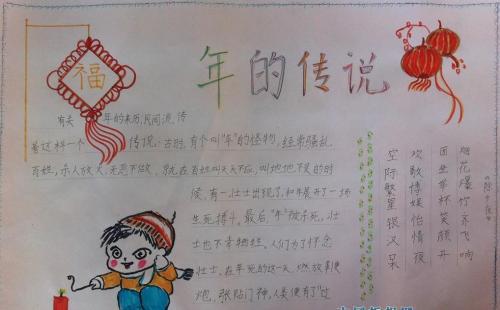 福
年的传说
有关 年的来历,民间流传
着这样一个 传说:古时,有个叫"年"的怪物,经常骚乱
百姓,杀人放火,无恶不做,就在百姓叫天天不应,叫地地不灵的时
候,有一壮士出现了,和年展开了一场
生死搏斗。最后,"年"被杀死,壮
士也不幸牺牲,人们为了怀念
壮士,在年死的这一天,燃放鞭
炮,张贴门神,人类便有了"过
《除夕夜》
烟花爆竹齐飞响
团坐举杯笑颜开
欢歌博娱怡情夜
空际繁星银汉呆